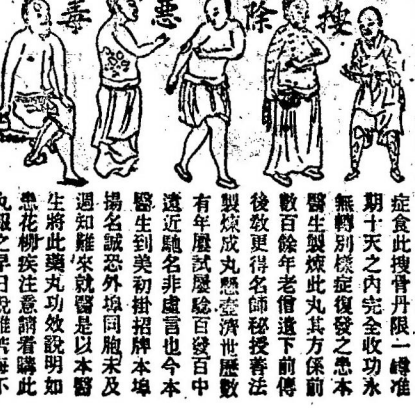 搜除惡毒
症食此搜骨丹限一樽准
期十天之内完全收功永
無轉別樣症復發之患本
醫生製煉此丸其方係前
數百餘年老僧遺下前傳
後教更得名師秘授善法
製煉成丸懸壺濟世歷數
有年屢試屢驗百發百中
遠近馳名非虛言也今本
醫生到美初掛招牌本埠
揚名誠恐外埠同胞未及
週知難來就醫是以本醫
生將此藥丸功效說明如
患花柳疾注意請看購此
丸服之早日脫離苦海不